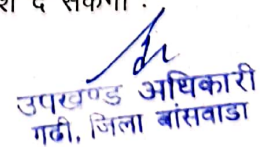 द सकगा .
उपखण्ड अधिकारी
गढी, जिला बांसवाडा